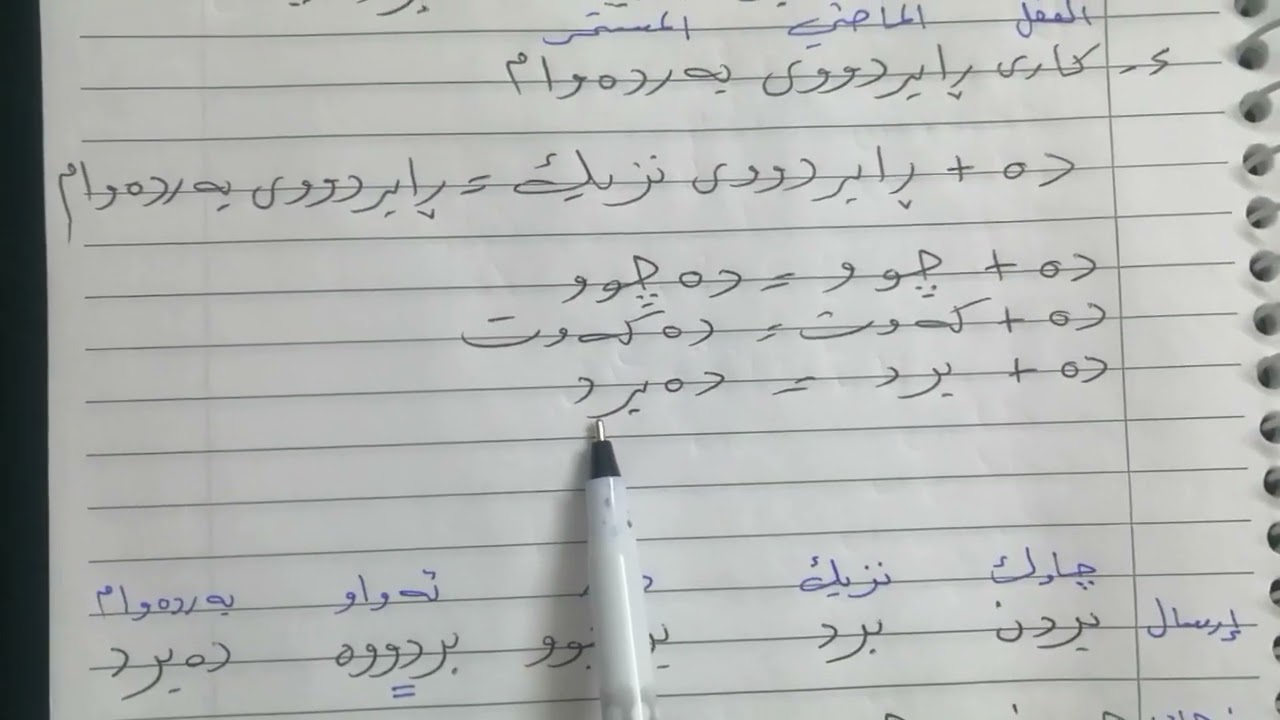 الفعل الماضي المستمر
٤- کاری ڕابردووی بەردەوام
دە + ڕابردووی نزیك = ڕابردووی بەردەوام
دە + چوو = دەچوو
دە + کەوت = دەکەوت
دە + برد = دەبرد
چاوك نزیك تەواو بەردەوام
إرسال بردن برد بردووە دەبرد